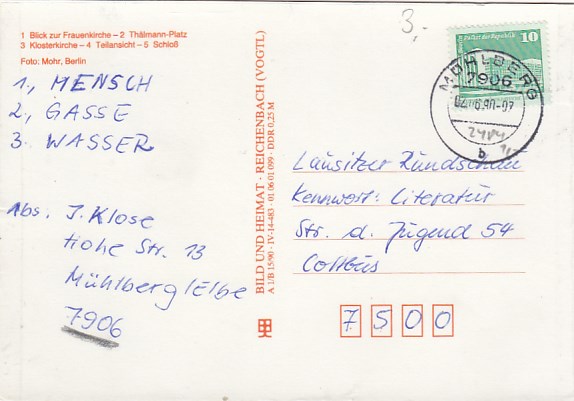 1 Blick zur Frauenkirche – 2 Thälmann-Platz
3 Klosterkirche – 4 Teilansicht – 5 Schloß
Foto: Mohr, Berlin
1, MENSCH
2, GASSE
3. WASSER
Abs. J. Klose
Hohe Str. 13
Mühlberg/Elbe
7906
BILD UND HEIMAT · REICHENBACH (VOGTL)
A 1/B 15/90 · IV-14-483 · 01 06 01 099 · DDR 0,25 M
3,-
10
Palast der Republik
MÜHLBERG
7906
02.06.90-07
b
Lausitzer Rundschau
Kennwort: Literatur
Str. d. Jugend 54
Cottbus
7500